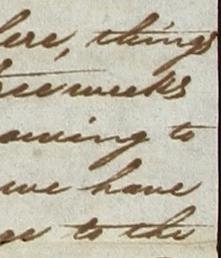 here, things
three weeks
owing to
we have
to the